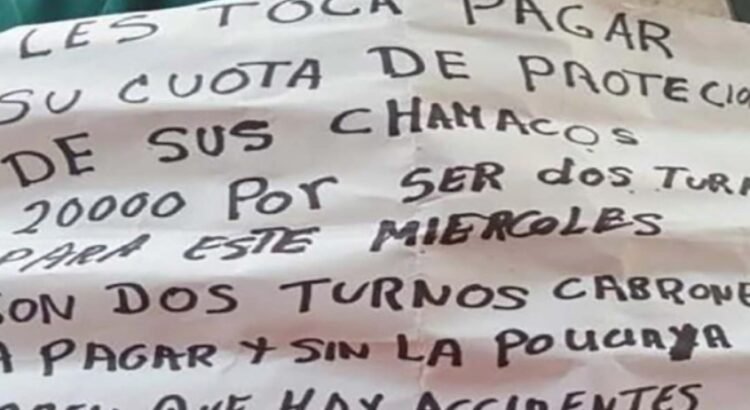 LES TOCA PAGAR
SU CUOTA DE PROTECIO
DE SUS CHAMACOS
20000 POR SER dos TUR
PARA ESTE MIERCOLES
SON DOS TURNOS CABRONE
A PAGAR Y SIN LA POLICIA YA
QUE HAY ACCIDENTES